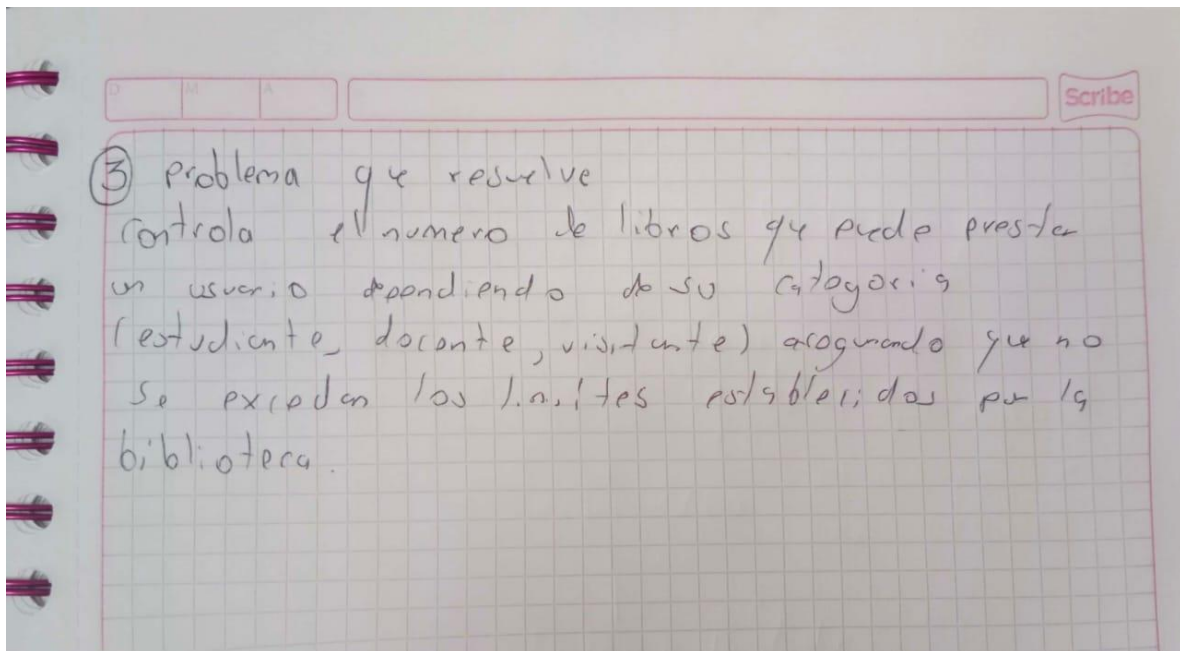 D M A
Scribe
③ problema que resuelve
Controla el numero de libros que puede prestar
un usuario dependiendo de su categoria
(estudiante, docente, visitante) asegurando que no
se excedan los limites establecidos por la
biblioteca.